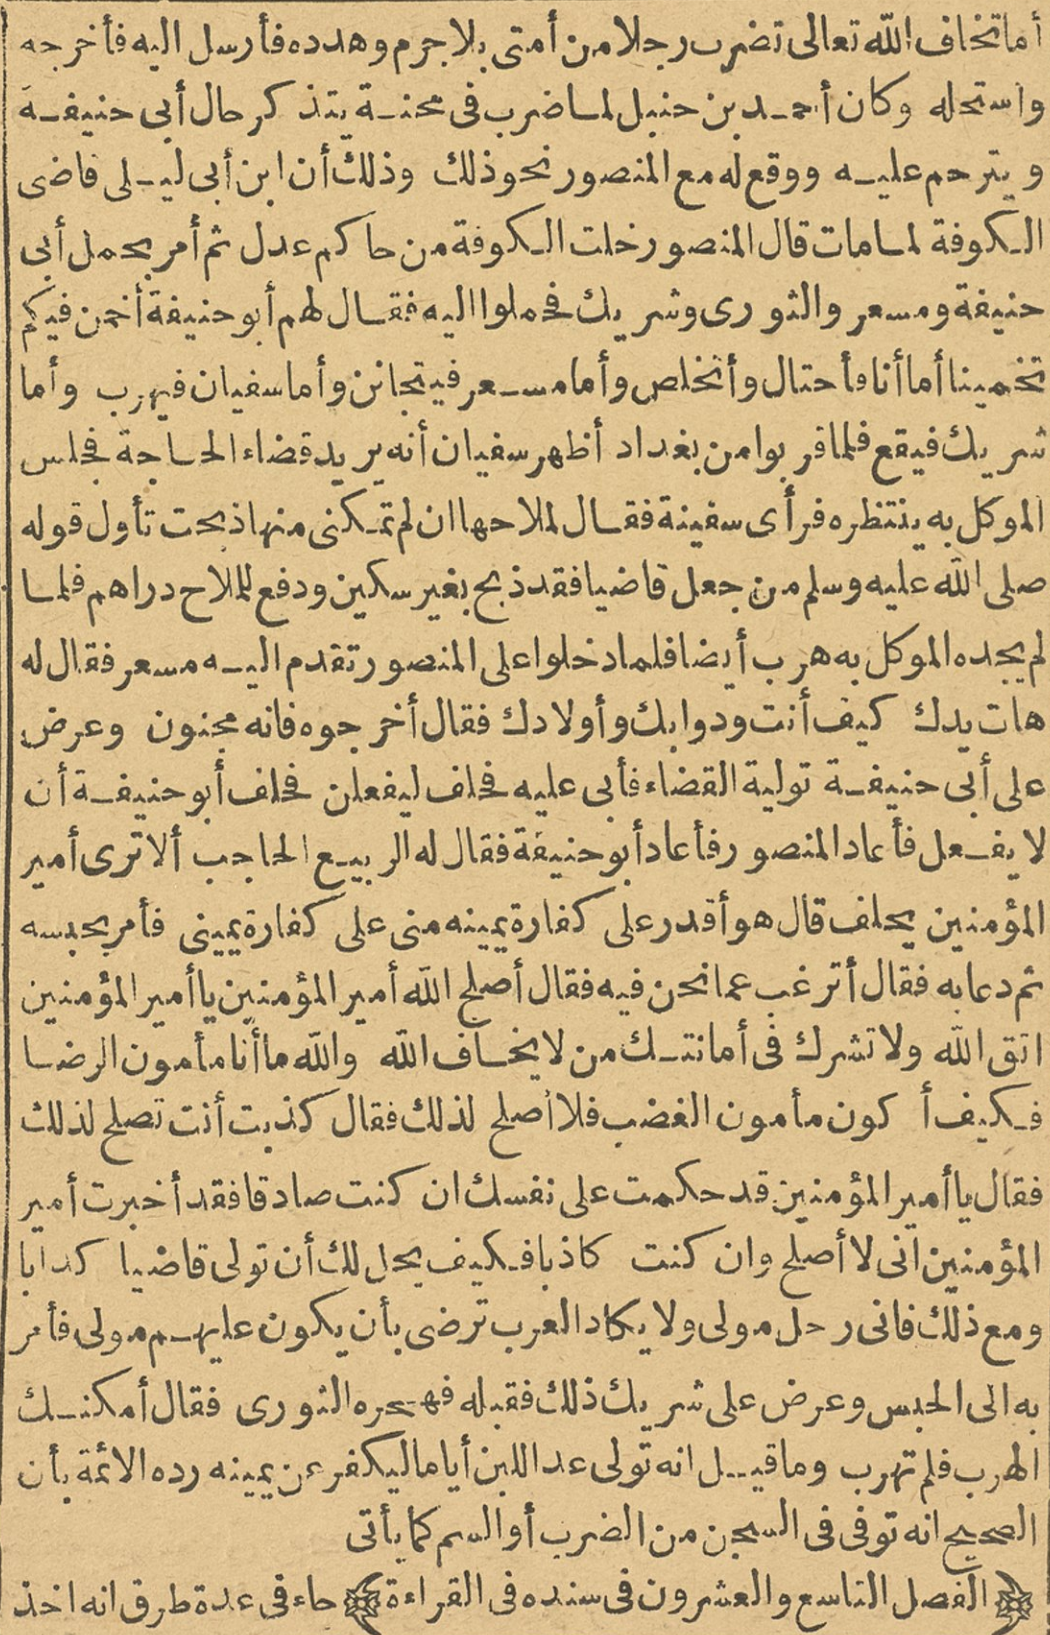 أما تخاف الله تعالى تضرب رجلا من أمتى بلا جرم وهدده فأرسل اليه فأخرجه
واستحله وكان أحمد بن حنبل لما ضرب فى محنته يتذكر حال أبى حنيفة
ويترحم عليه ووقع له مع المنصور نحو ذلك وذلك أن ابن أبى ليلى قاضى
الكوفة لما مات قال المنصور خلت الكوفة من حاكم عدل ثم أمر بحمل أبى
حنيفة ومسعر والثورى وشريك فحملوا اليه فقال لهم أبو حنيفة أخمن فيكم
تخمينا أما أنا فأحتال وأتخلص وأما مسعر فيتجانن وأما سفيان فيهرب وأما
شريك فيقع فلما قربوا من بغداد أظهر سفيان أنه يريد قضاء الحاجة فجلس
الموكل به ينتظره فرأى سفينة فقال لملاحها ان لم تمكنى منها ذبحت تأول قوله
صلى الله عليه وسلم من جعل قاضيا فقد ذبح بغير سكين ودفع للملاح دراهم فلما
لم يجده الموكل به هرب أيضا فلما دخلوا على المنصور تقدم اليه مسعر فقال له
هات يدك كيف أنت ودوابك وأولادك فقال أخرجوه فانه مجنون وعرض
على أبى حنيفة تولية القضاء فأبى عليه فحلف ليفعلن فحلف أبو حنيفة أن
لا يفعل فأعاد المنصور فأعاد أبو حنيفة فقال له الربيع الحاجب ألا ترى أمير
المؤمنين يحلف قال هو أقدر على كفارة يمينه منى على كفارة يمينى فأمر بحبسه
ثم دعا به فقال أترغب عما نحن فيه فقال أصلح الله أمير المؤمنين يا أمير المؤمنين
اتق الله ولا تشرك فى أمانتك من لا يخاف الله والله ما أنا مأمون الرضا
فكيف أكون مأمون الغضب فلا أصلح لذلك فقال كذبت أنت تصلح لذلك
فقال يا أمير المؤمنين قد حكمت على نفسك ان كنت صادقا فقد أخبرت أمير
المؤمنين انى لا أصلح وان كنت كاذبا فكيف يحل لك أن تولى قاضيا كذابا
ومع ذلك فانى رجل مولى ولا يكاد العرب ترضى بأن يكون عليهم مولى فأمر
به الى الحبس وعرض على شريك ذلك فقبله فهجره الثورى فقال أمكنك
الهرب فلم تهرب وما قيل انه تولى عد اللبن أياما ليكفر عن يمينه رده الائمة بأن
الصحيح انه توفى فى السجن من الضرب أو السم كما يأتى
﴿الفصل التاسع والعشرون فى سنده فى القراءة﴾ جاء فى عدة طرق انه اخذ